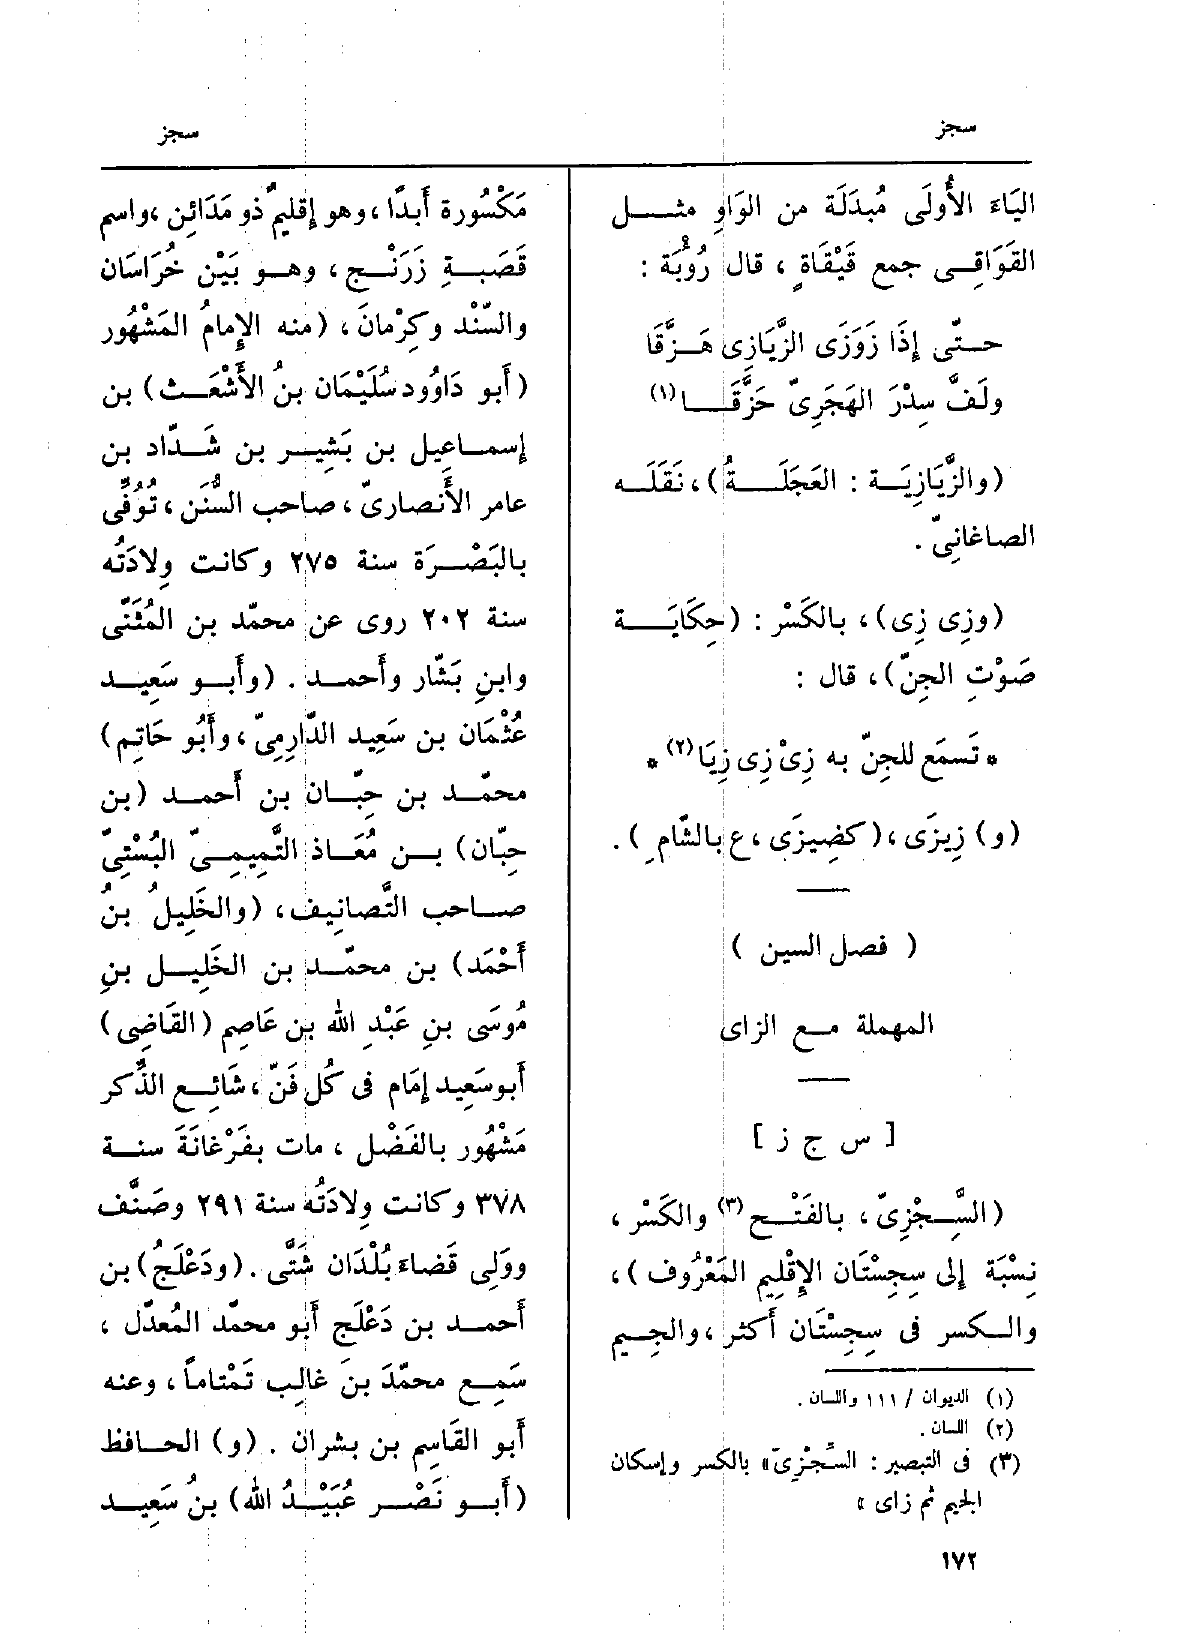 سجز
سجز
اليَاءَ الأُولَى مُبدَلَة من الوَاوِ مثــل
القَوَاقِــى جمع قَيْقَاةٍ ، قال رُؤْبَة :
حــتّى إِذَا زَوَزَى الزَّيَازِى هَــزَّقَا
ولَفَّ سِدْرَ الهَجَرِىّ حَزَّقَــا (١)
(والزَّيَازِيَــة : العَجَلَــةُ) ، نَقَلَــه
الصاغانِىّ .
(وزِى زِى) ، بالكَسْر : (حِكَايَــة
صَوْتِ الجِنّ) ، قال :
* تَسمَع للجِنّ به زِىْ زِى زِيَا (٢) *
(و) زِيزَى ، (كضِيزَى ، ع بالشّام ِ) .
( فصل السين )
المهملة مــع الزاى
[ س ج ز ]
(السَِّــجْزِىّ ، بالفَتْــح (٣) والكَسْر ،
نِسْبَة إلى سِجِسْتَان الإِقْلِيم المَعْرُوف ) ،
والــكسر فى سِجِسْتَان أكثر ، والجِيــم
(١) الديوان / ١١١ واللسان .
(٢) اللسان .
(٣) فى التبصير : السِّجْزِىّ» بالكسر وإسكان
الجيم ثم زاى »
مَكْسُورة أَبدًا ، وهو إقليمٌ ذو مَدَائِن ، واسم
قَصَبــةِ زَرَنْــج ، وهــو بَيْن خُرَاسَان
والسِّنْد وكِرْمَانَ ، (منه الإِمامُ المَشْهُور
(أبو دَاوُود سُلَيْمَان بنُ الأَشْعَــث) بن
إسمــاعِيل بن بَشِيــر بن شَــدّاد بن
عامر الأَنصارِىّ ، صاحب السُّنَن ، تُوُفِّى
بالبَصْــرَة سنة ٢٧٥ وكانت وِلادَتُه
سنة ٢٠٢ روى عن محمّد بن المُثَنَّى
وابنِ بَشّار وأَحمــد . (وأَبــو سَعِيــد
عُثْمَان بن سَعِيد الدّارِمِىّ ، وأَبُو حَاتِم)
محمّــد بن حِبّــان بن أَحمــد (بن
حِبّان) بــن مُعَــاذ التَّمِيمِــىّ البُسْتِىّ
صــاحب التَّصانِيف ، (والخَلِيلُ بنُ
أَحْمَد) بن محمّــد بن الخَلِيــل بنِ
مُوسَى بنِ عَبْدِ الله بن عَاصِم (القَاضِى)
أبو سَعِيد إمَام فى كُل فَنّ ، شَائِــع الذِّكر
مَشْهُور بالفَضْل ، مات بفَرْغَانَةَ سنــة
٣٧٨ وكانت وِلادَتُه سنة ٢٩١ وصَنَّف
ووَلِى قَضَاءَ بُلْدَان شَتَّى . (ودَعْلَجُ) بن
أَحمــد بن دَعْلَج أَبو محمّد المُعدّل ،
سَمِــع محمّدَ بنَ غالِب تَمْتاماً ، وعنه
أبو القَاسِم بن بشران . (و) الحافظ
(أَبــو نَصْــر عُبَيْــدُ الله) بنُ سَعِيــد
١٧٢